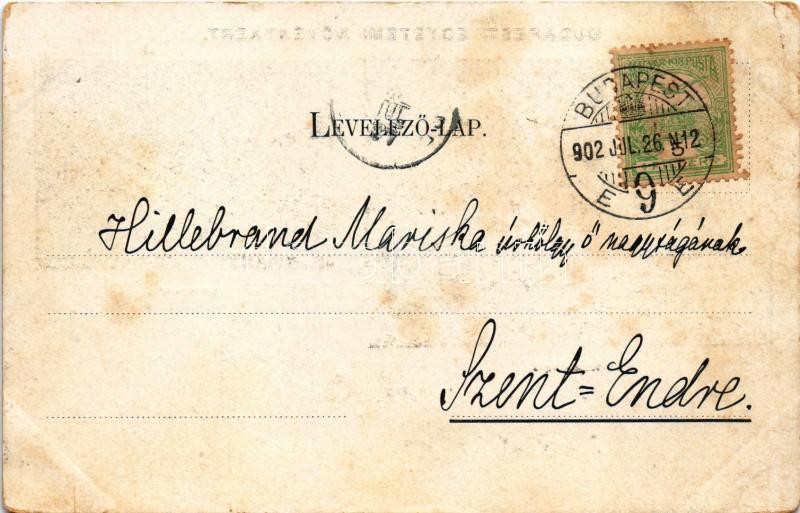 MAGYAR KIR. POSTA
BUDAPEST
902 JUL. 26. N12
9
LEVELEZŐ-LAP.
JUL
Hillebrand Mariska úrhölgy ő nagyságának
Szent=Endre.